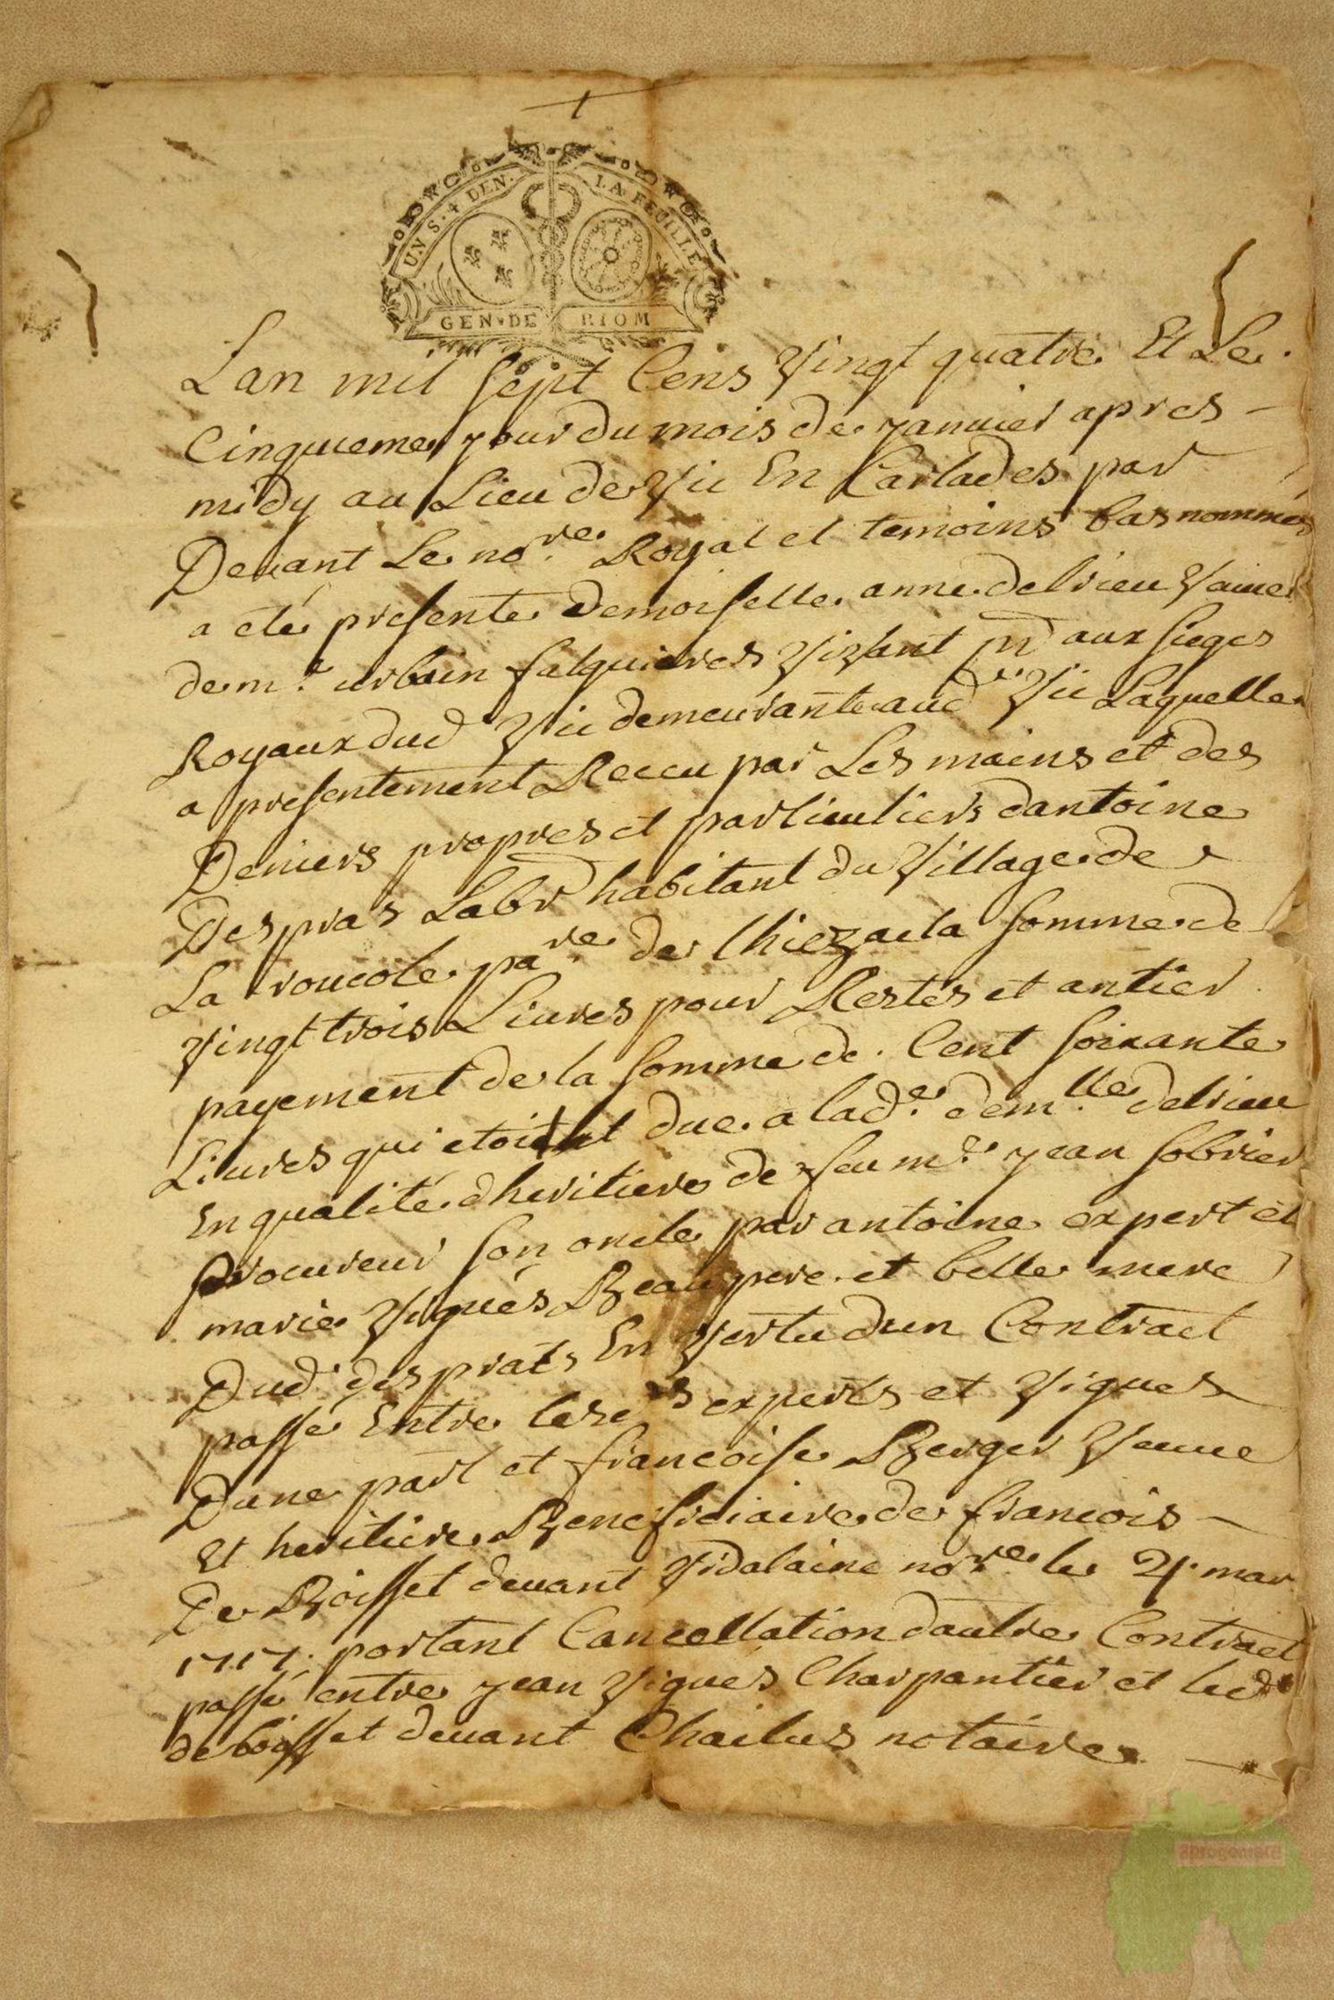 UN S. 4 DEN. LA FEUILLE
GEN. DE RIOM
Lan mil sept Cens Vingt quatre Et Le
Cinquieme jour du mois de janvier apres
midy au Lieu de Vic En Carlades par
Devant Le no.re Royal et temoins bas nommés
a eté presente Demoiselle anne delrieu
de m.e urbain falquieres Vivant pr aux sieges
Royaux dud Vic demeurante aud Vic Laquelle
a presentement Receu par Les mains et des
Deniers propres et particuliers dantoine
Desprats Labr habitant du Village de
La roucole pa.re de thiezac la somme de
Vingt trois Livres pour Restes et antier
payement de la somme de Cent soixante
Livres qui etoit due a lad.e dem.lle delrieu
En qualité dheritiere de feu m.e jean sobrier
procureur son oncle par antoine expert et
marie Vigues Beau pere et belle mere
Dud. desprats En Vertu dun Contract
passé Entre lesd.s experts et Vigues
Dune part et francoise Berger Veuve
Et heritiere Beneficiaire de francois
De Boisset devant Vidalaine no.re le 21 mar
1717 portant Cancellation dautre Contract
passé entre jean Vigues Charpantier et led.
de boisset devant Chailus notaire